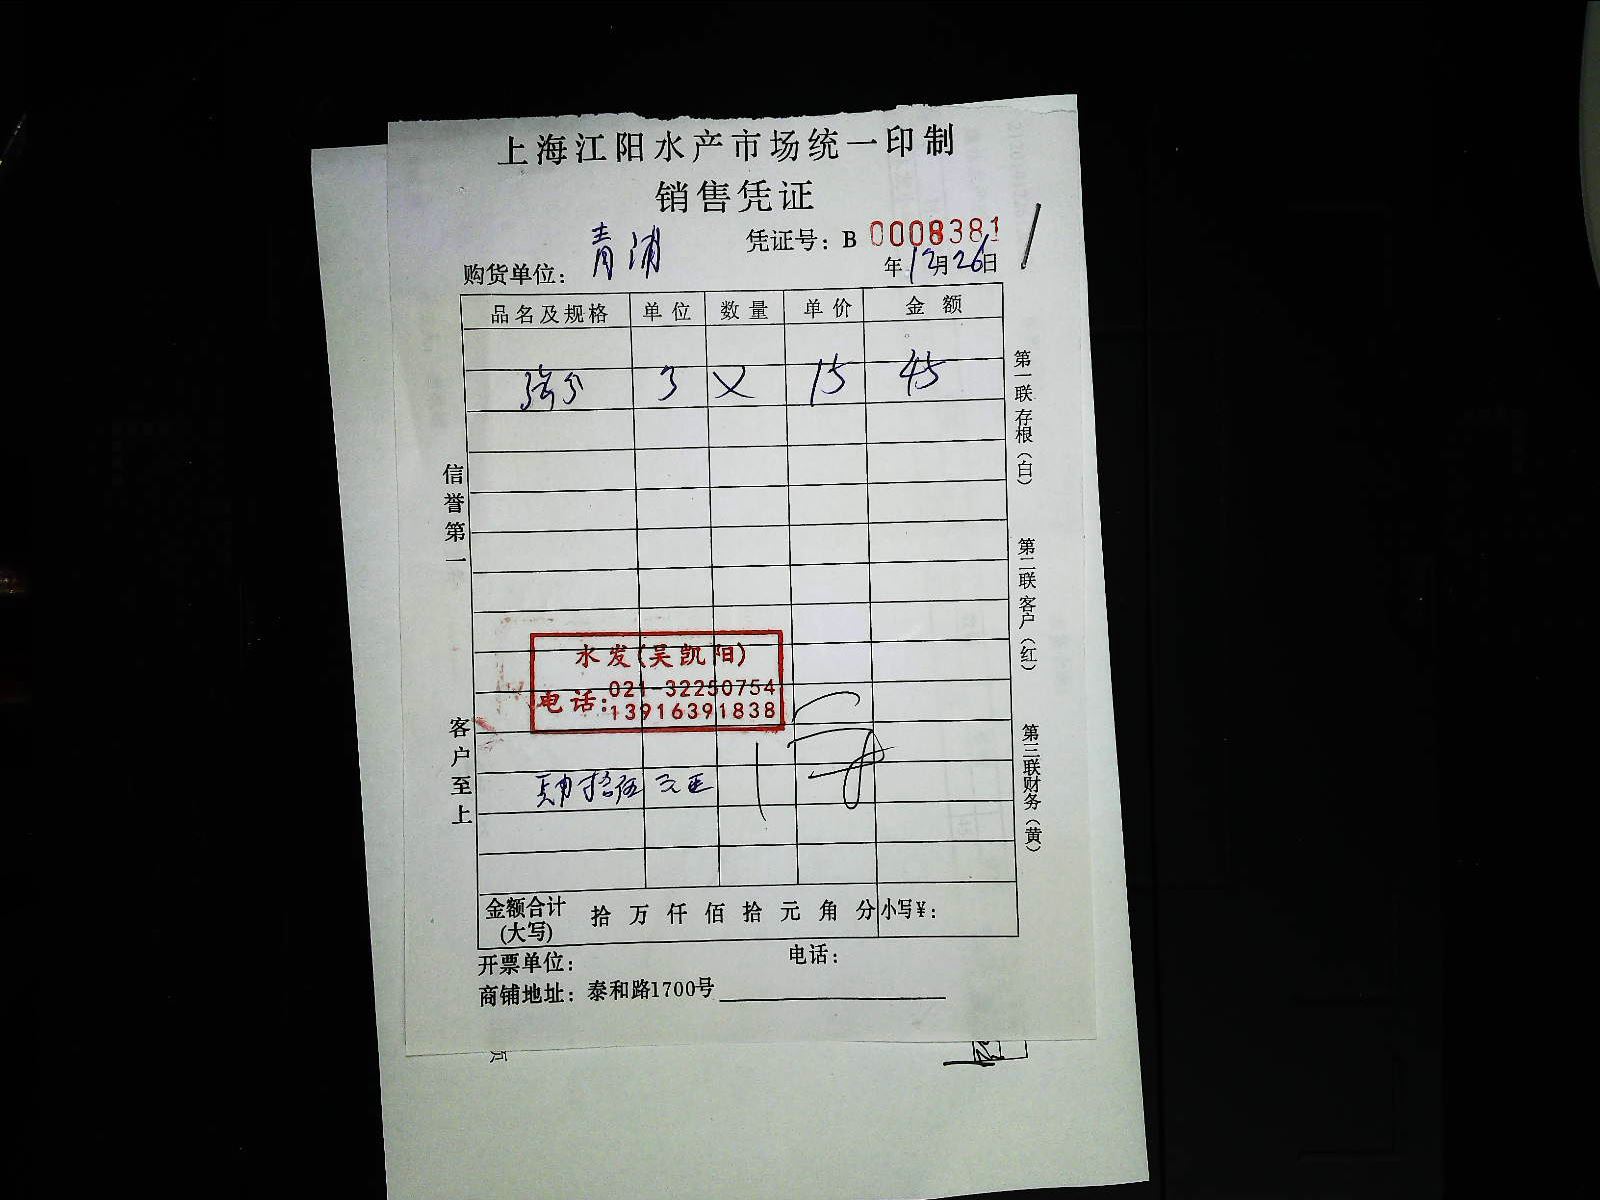 上海江阳水产市场统一印制
销售凭证
凭证号：B 0008381
购货单位：青浦
年12月26日
品名及规格 单位 数量 单价 金额
3 × 15 45
信誉第一
客户至上
第一联存根（白）
第二联客户（红）
第三联财务（黄）
水发(吴凯阳)
电话:021-32250754
13916391838
肆拾伍元正
金额合计(大写) 拾 万 仟 佰 拾 元 角 分 小写¥：
开票单位： 电话：
商铺地址：泰和路1700号